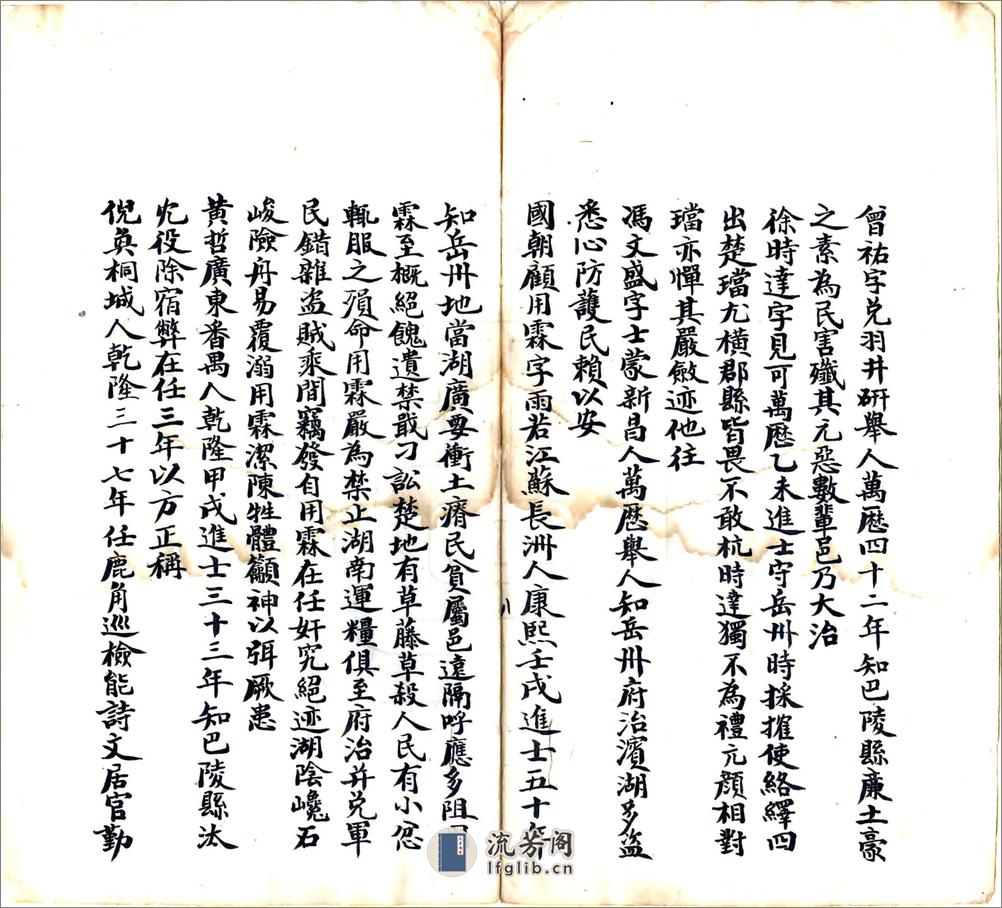 曾祐字兌羽井研舉人萬歷四十二年知巴陵縣廉土豪
之素為民害殲其元惡數輩邑乃大治
徐時達字見可萬歷乙未進士守岳州時採搉使絡繹四
出楚璫尤橫郡縣皆畏不敢杭時達獨不為禮亢顏相對
璫亦憚其嚴斂迹他往
馮文盛字士蒙新昌人萬歷舉人知岳州府治濱湖多盜
悉心防護民賴以安
國朝顧用霖字雨若江蘇長洲人康熙壬戌進士五十年
知岳州地當湖廣要衝土瘠民貧屬邑遠隔呼應多阻
霖至概絕餽遺禁戢刁訟楚地有草藤草殺人民有小忿
輒服之殞命用霖嚴為禁止湖南運糧俱至府治并兌軍
民錯雜盜賊乘間竊發自用霖在任奸宄絕迹湖陰巉石
峻險舟易覆溺用霖潔陳牲醴籲神以弭厥患
黃哲廣東番禺人乾隆甲戌進士三十三年知巴陵縣汰
冗役除宿弊在任三年以方正稱
倪奐桐城人乾隆三十七年任鹿角巡檢能詩文居官勤
流芳阁
lfglib.cn